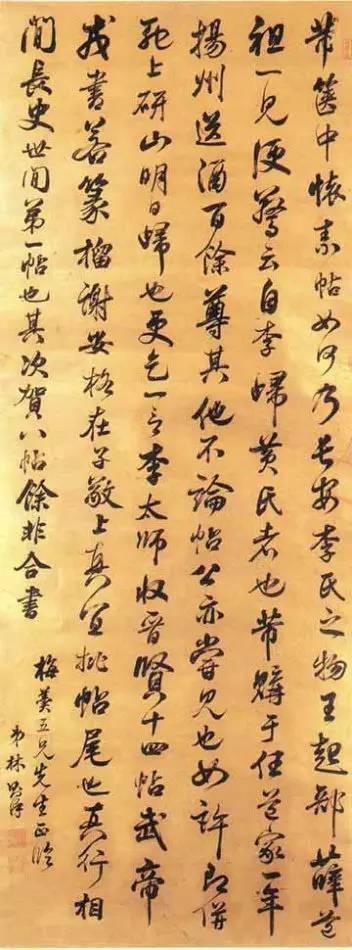 芾篋中懷素帖如何乃長安李氏之物王起部薛道
祖一見便驚云自李歸黄氏者也芾購于任道家一年
揚州送酒百餘尊其他不論帖公亦嘗見也如許即併
馳上研山明日歸也更乞一言李太師收晉賢十四帖武帝
戎書若篆榴謝安格在子敬上真宜批帖尾也真行相
間長史世間第一帖也其次賀八帖餘非合書
梅羹五兄先生正臨
弟林則徐